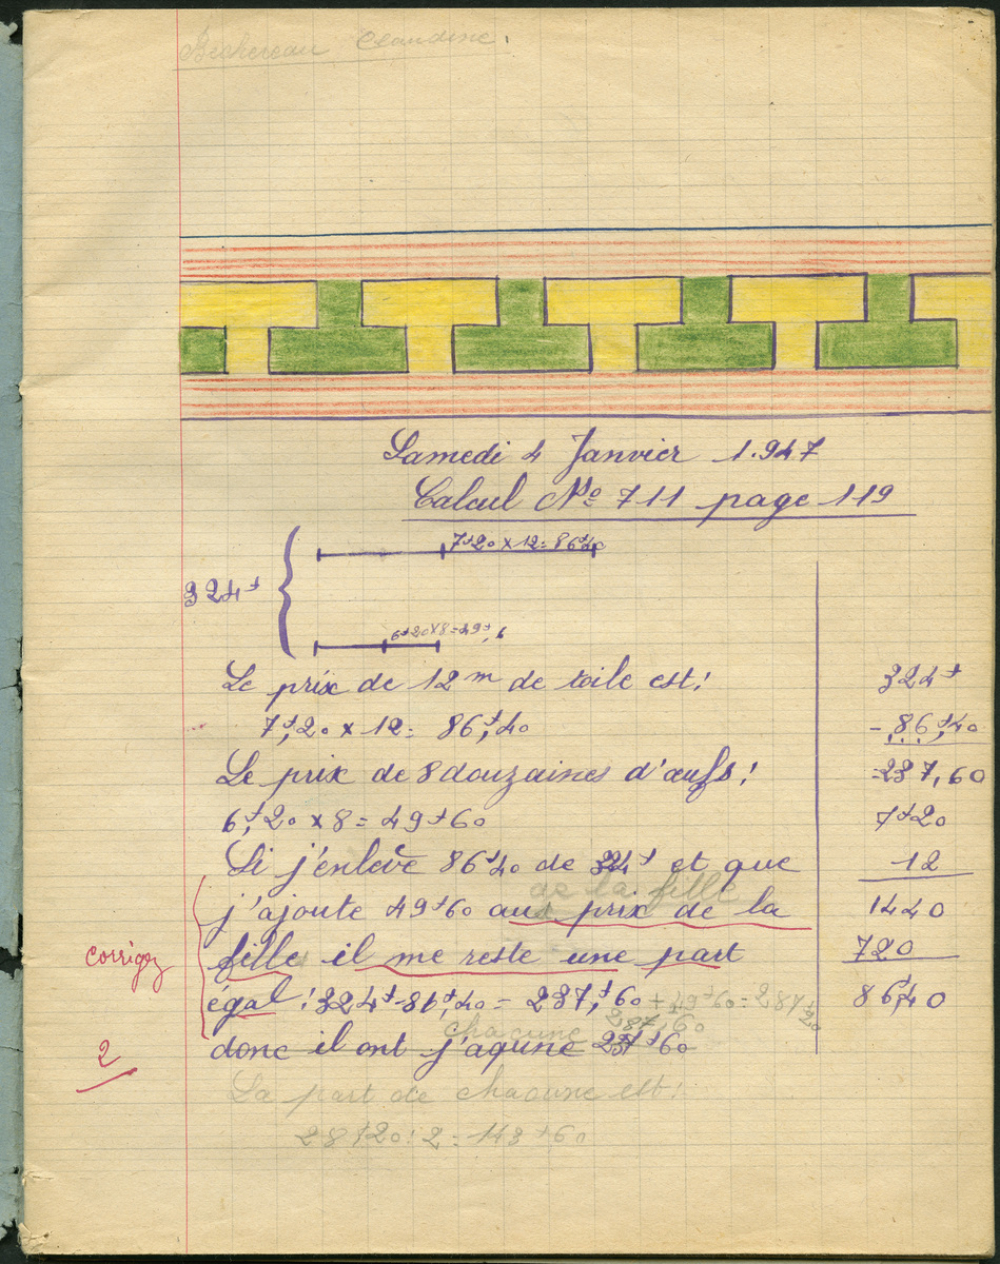 Bechereau Claudine.
Samedi 4 Janvier 1.947
Calcul Nº 711 page 119
7f20 x 12 = 86f40
324f
6f20x8=49f,6
Le prix de 12 m de toile est:
7f,20 x 12 = 86f,40
Le prix de 8 douzaines d'œufs:
6f,20 x 8 = 49f60
Si j'enlève 86f40 de 324f et que
de la fille
j'ajoute 49f60 aux prix de la
fille il me reste une part
égal: 324f-86f,40 = 237,f60 + 49f60 = 287f20
chacune 287,60
donc il ont j'aqune 237f60
La part de chacune est:
287f20:2 = 143f60
corrigez
2
324f
- 86f,40
=237,60
7f20
12
1440
720
86f40